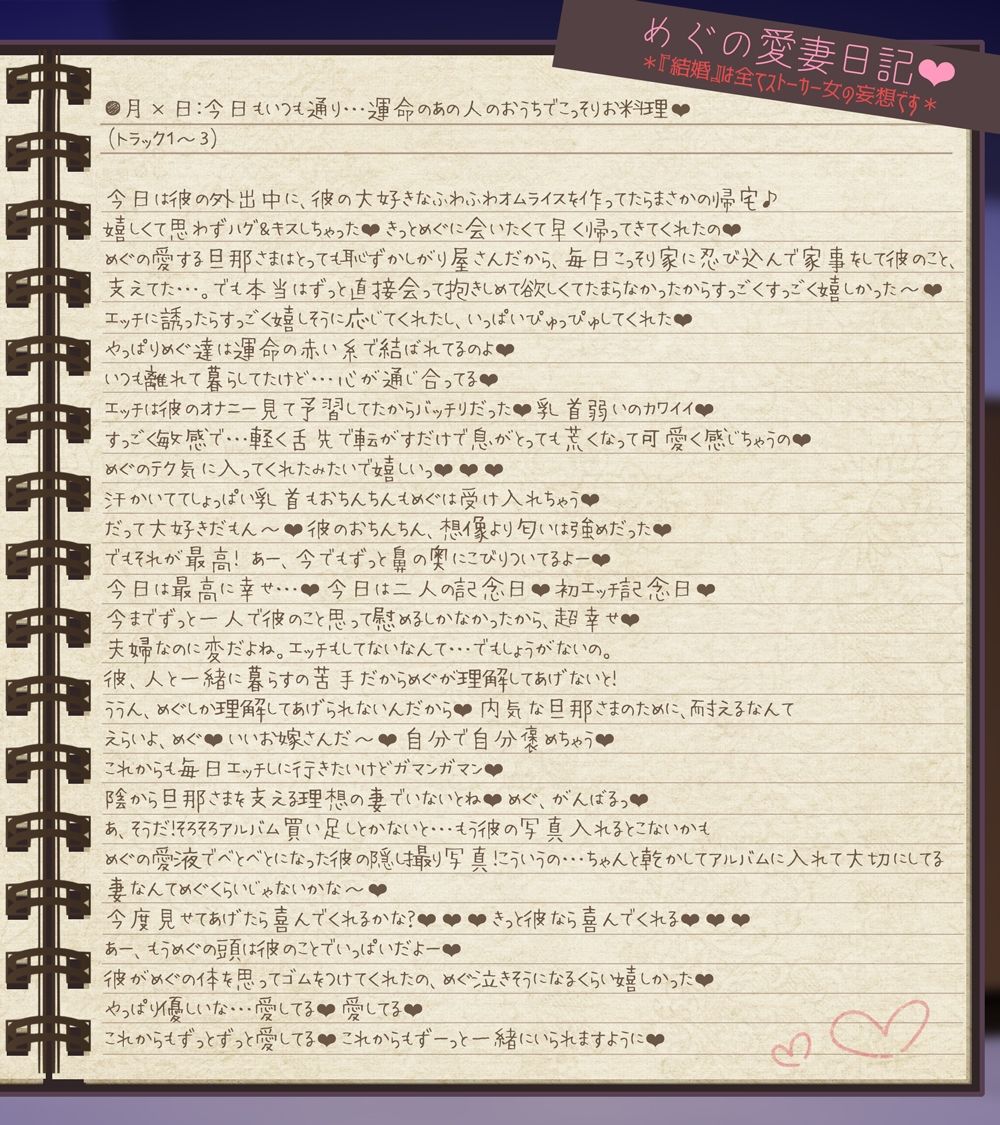 めぐの愛妻日記❤
＊『結婚』は全てストーカー女の妄想です＊
●月×日：今日もいつも通り…運命のあの人のおうちでこっそりお料理❤
(トラック1～3)
今日は彼の外出中に、彼の大好きなふわふわオムライスを作ってたらまさかの帰宅♪
嬉しくて思わずハグ&キスしちゃった❤きっとめぐに会いたくて早く帰ってきてくれたの❤
めぐの愛する旦那さまはとっても恥ずかしがり屋さんだから、毎日こっそり家に忍び込んで家事をして彼のこと、
支えてた…。でも本当はずっと直接会って抱きしめて欲しくてたまらなかったからすっごくすっごく嬉しかった～❤
エッチに誘ったらすっごく嬉しそうに応じてくれたし、いっぱいぴゅっぴゅしてくれた❤
やっぱりめぐ達は運命の赤い糸で結ばれてるのよ❤
いつも離れて暮らしてたけど…心が通じ合ってる❤
エッチは彼のオナニー見て予習してたからバッチリだった❤乳首弱いのカワイイ❤
すっごく敏感で…軽く舌先で転がすだけで息がとっても荒くなって可愛く感じちゃうの❤
めぐのテク気に入ってくれたみたいで嬉しいっ❤❤❤
汗かいててしょっぱい乳首もおちんちんもめぐは受け入れちゃう❤
だって大好きだもん～❤彼のおちんちん、想像より匂いは強めだった❤
でもそれが最高！あー、今でもずっと鼻の奥にこびりついてるよー❤
今日は最高に幸せ…❤今日は二人の記念日❤初エッチ記念日❤
今までずっと一人で彼のこと思って慰めるしかなかったから、超幸せ❤
夫婦なのに変だよね。エッチもしてないなんて…でもしょうがないの。
彼、人と一緒に暮らすの苦手だからめぐが理解してあげないと！
ううん、めぐしか理解してあげられないんだから❤内気な旦那さまのために、耐えるなんて
えらいよ、めぐ❤いいお嫁さんだ～❤自分で自分褒めちゃう❤
これからも毎日エッチしに行きたいけどガマンガマン❤
陰から旦那さまを支える理想の妻でいないとね❤めぐ、がんばるっ❤
あ、そうだ！そろそろアルバム買い足しとかないと…もう彼の写真入れるとこないかも
めぐの愛液でべとべとになった彼の隠し撮り写真！こういうの…ちゃんと乾かしてアルバムに入れて大切にしてる
妻なんてめぐくらいじゃないかな～❤
今度見せてあげたら喜んでくれるかな？❤❤❤きっと彼なら喜んでくれる❤❤❤
あー、もうめぐの頭は彼のことでいっぱいだよー❤
彼がめぐの体を思ってゴムをつけてくれたの、めぐ泣きそうになるくらい嬉しかった❤
やっぱり優しいな…愛してる❤愛してる❤
これからもずっとずっと愛してる❤これからもずーっと一緒にいられますように❤